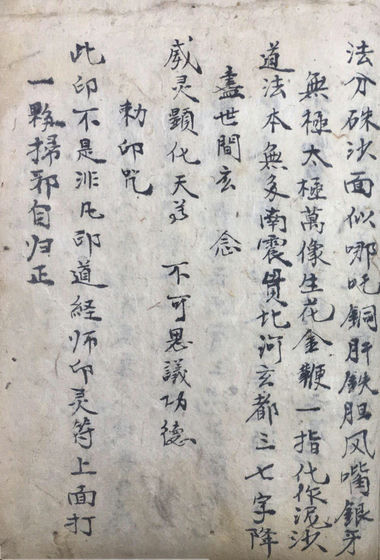 法分硃沙面似哪吒銅肝鉄胆风嘴銀牙
無極太極萬像生花金鞭一指化作泥沙
道法本無多南震貫北河玄都三七字降
盡世間玄 念
威灵顕化天 不可思議功德
勅印咒
此印不是非凡印道経师印灵符上面打
一點掃邪自归正